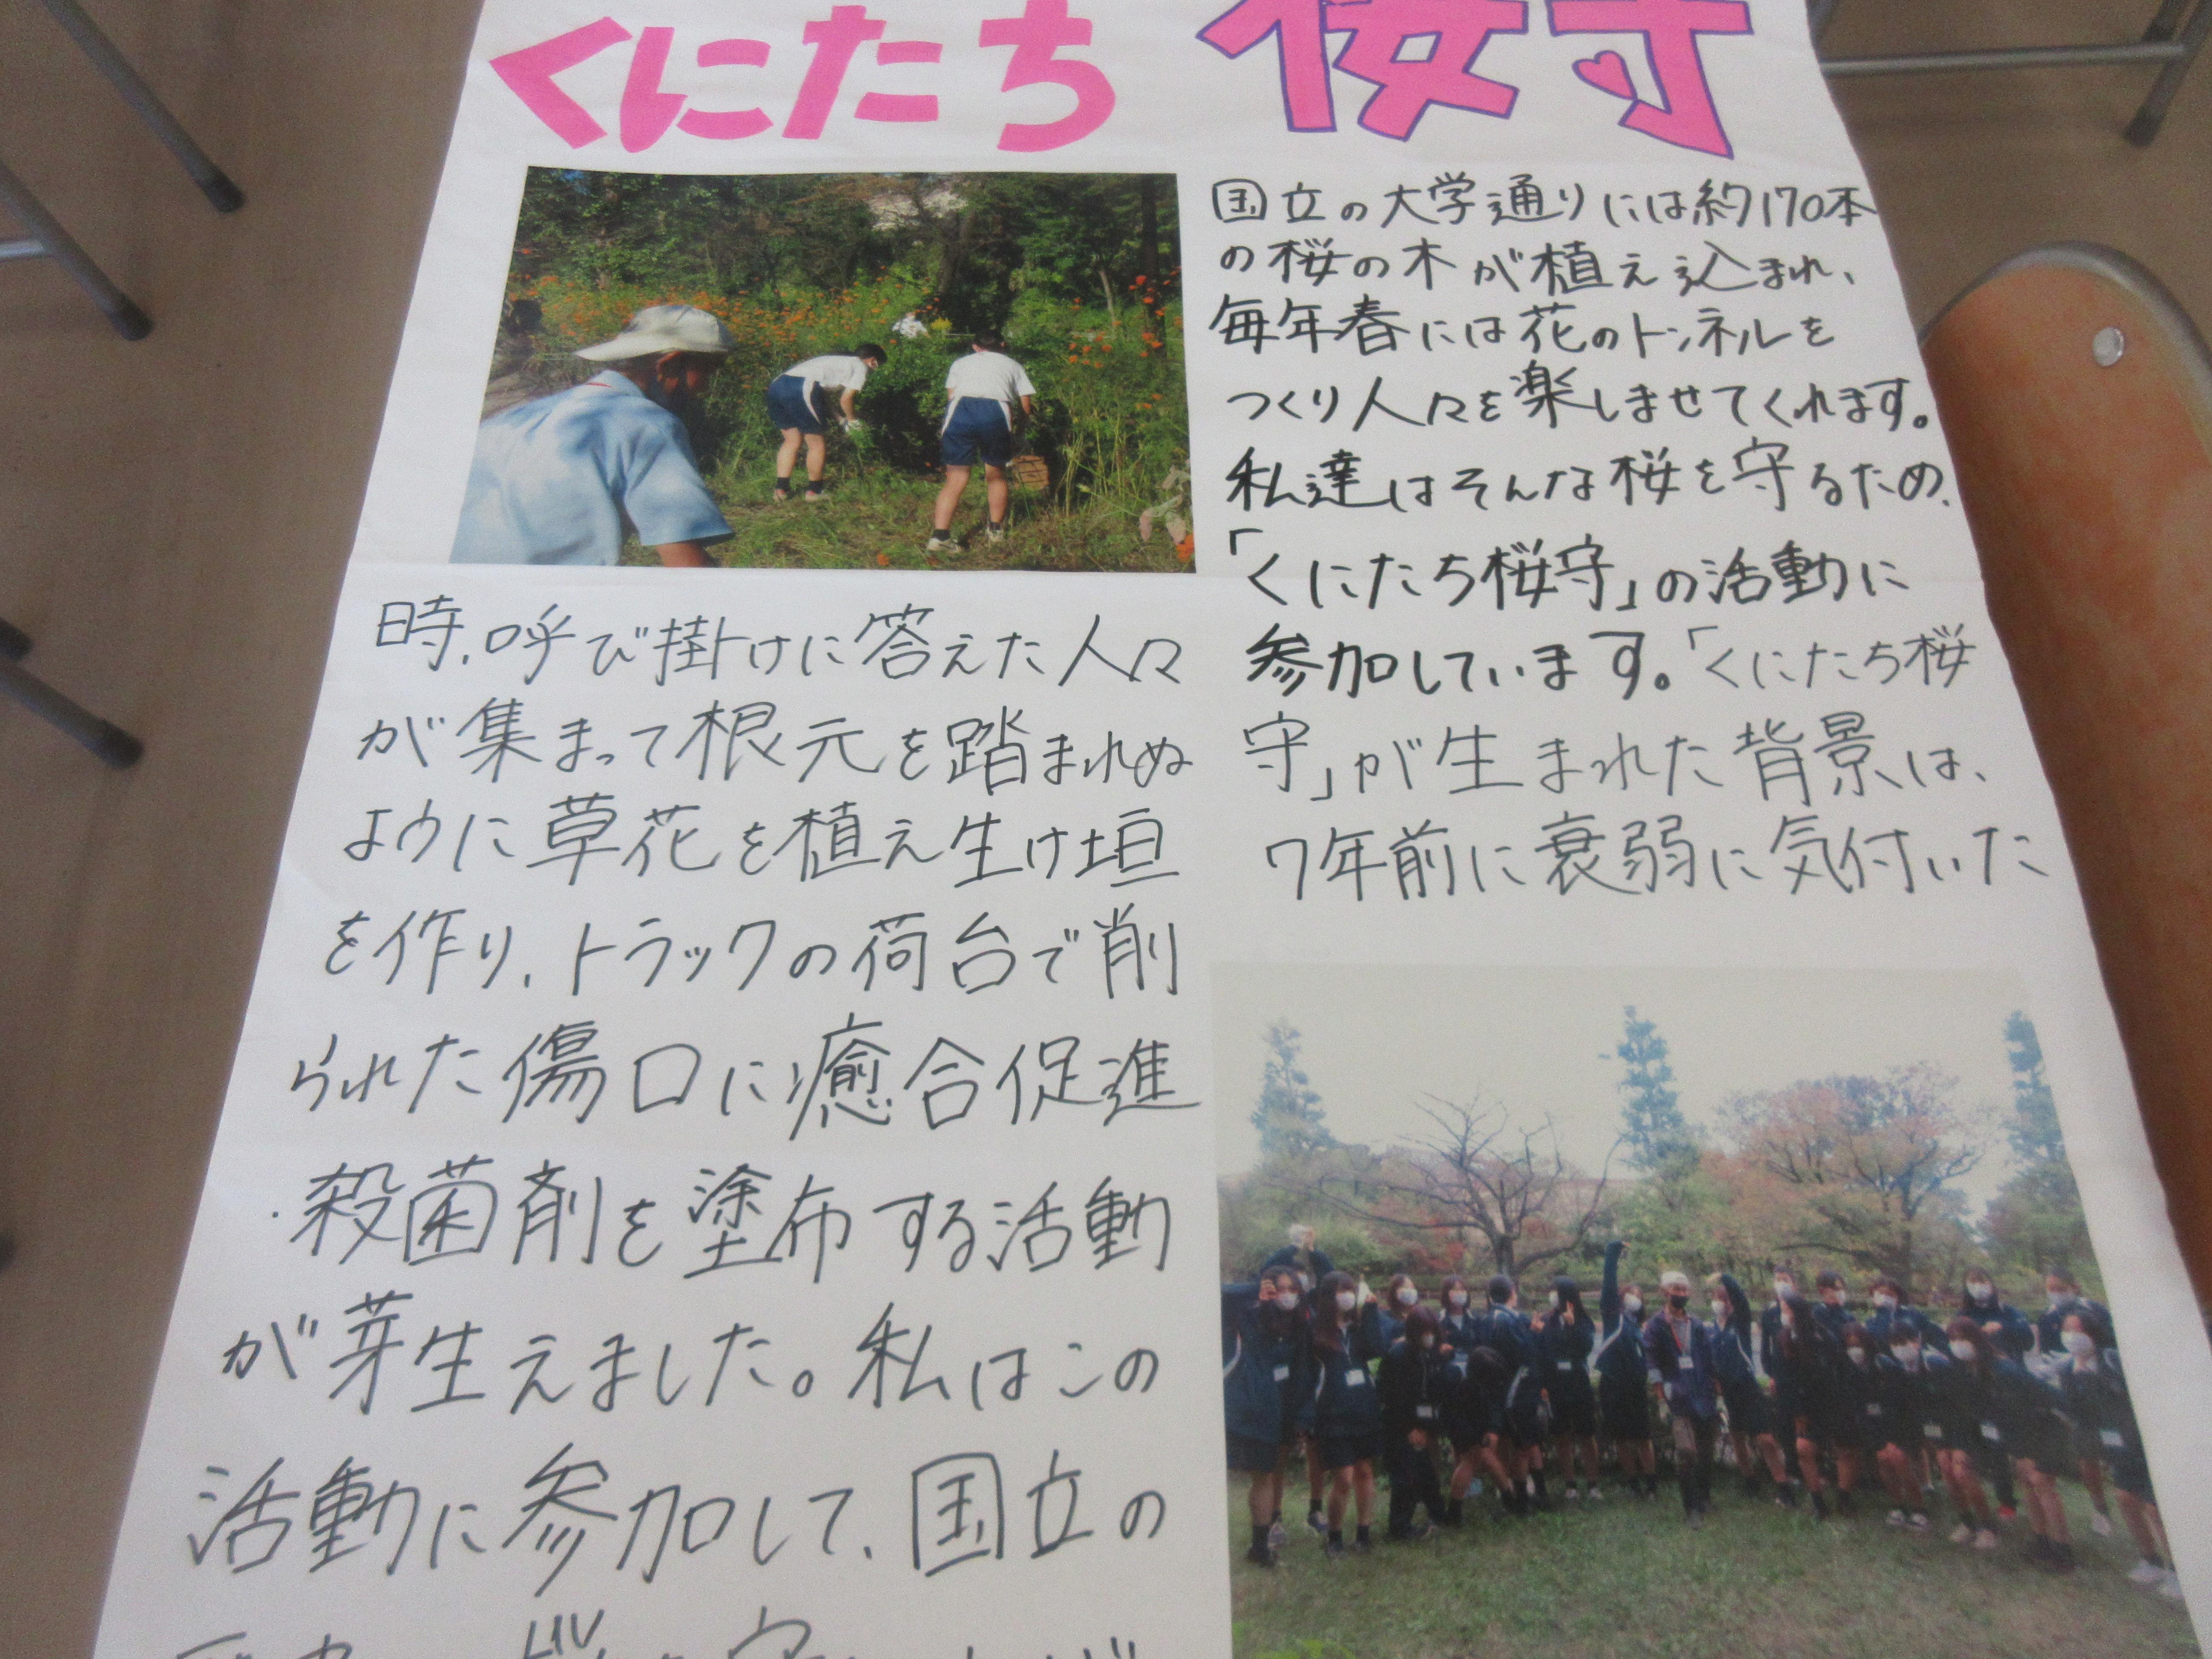 くにたち 桜守
国立の大学通りには約170本
の桜の木が植え込まれ、
毎年春には花のトンネルを
つくり人々を楽しませてくれます。
私達はそんな桜を守るため、
「くにたち桜守」の活動に
参加しています。「くにたち桜
守」が生まれた背景は、
7年前に衰弱に気付いた
時、呼び掛けに答えた人々
が集まって根元を踏まれぬ
ように草花を植え生け垣
を作り、トラックの荷台で削
られた傷口に癒合促進
・殺菌剤を塗布する活動
が芽生えました。私はこの
活動に参加して、国立の